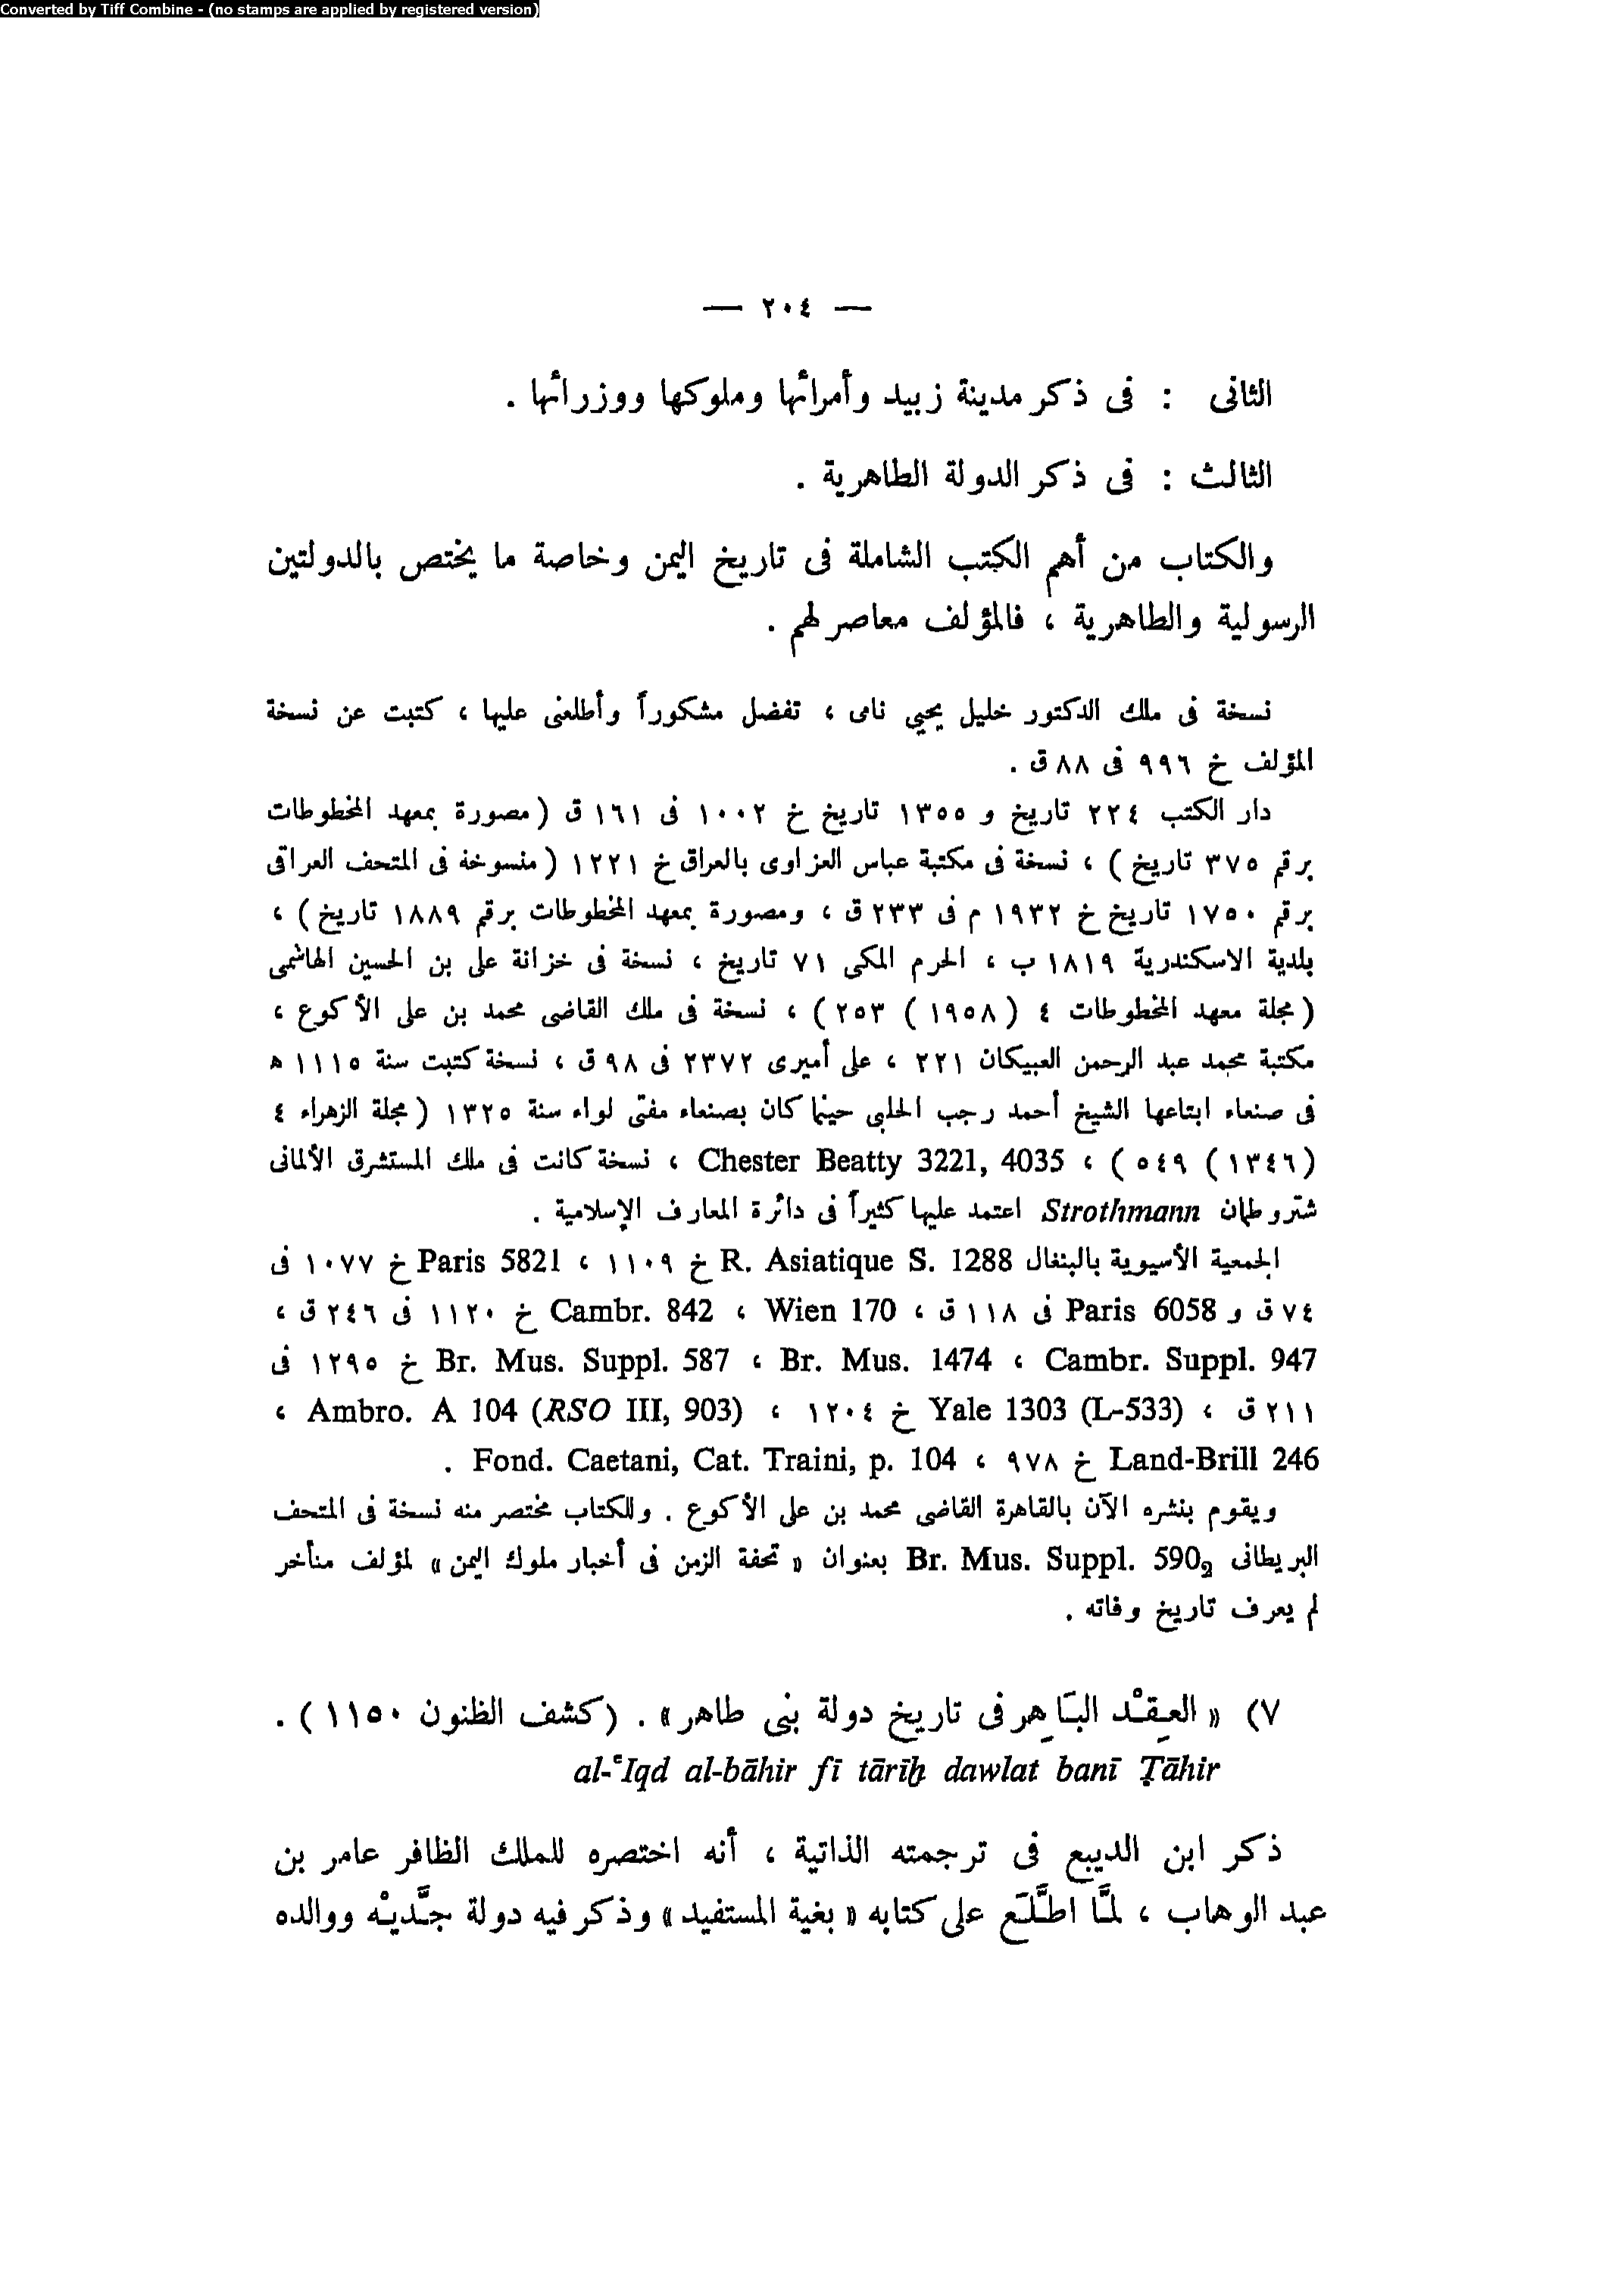 Converted by Tiff Combine - (no stamps are applied by registered version)
— ٢٠٤ —
الثانى : فى ذكر مدينة زبيد وأمرائها وملوكها ووزرائها .
الثالث : فى ذكر الدولة الطاهرية .
والكتاب من أهم الكتب الشاملة فى تاريخ اليمن وخاصة ما يختص بالدولتين
الرسولية والطاهرية ، فالمؤلف معاصر لهم .
نسخة فى ملك الدكتور خليل يحيي نامى ، تفضل مشكوراً وأطلعنى عليها ، كتبت عن نسخة
المؤلف خ ٩٩٦ فى ٨٨ ق .
دار الكتب ٢٢٤ تاريخ و ١٣٥٥ تاريخ خ ١٠٠٢ فى ١٦١ ق ( مصورة بمعهد المخطوطات
برقم ٣٧٥ تاريخ ) ، نسخة فى مكتبة عباس العزاوى بالعراق خ ١٢٢١ ( منسوخة فى المتحف العراقى
برقم ١٧٥٠ تاريخ خ ١٩٣٢ م فى ٢٣٣ ق ، ومصورة بمعهد المخطوطات برقم ١٨٨٩ تاريخ ) ،
بلدية الاسكندرية ١٨١٩ ب ، الحرم المكى ٧١ تاريخ ، نسخة فى خزانة على بن الحسين الهاشمى
( مجلة معهد المخطوطات ٤ ( ١٩٥٨ ) ٢٥٣ ) ، نسخة فى ملك القاضى محمد بن على الأكوع ،
مكتبة محمد عبد الرحمن العبيكان ٢٢١ ، على أميرى ٢٣٧٢ فى ٩٨ ق ، نسخة كتبت سنة ١١١٥ ه
فى صنعاء ابتاعها الشيخ أحمد رجب الحلبى حينما كان بصنعاء مفتى لواء سنة ١٣٢٥ ( مجلة الزهراء ٤
( ١٣٤٦ ) ٥٤٩ ) ، Chester Beatty 3221, 4035 ، نسخة كانت فى ملك المستشرق الألمانى
شتروطمان Strothmann اعتمد عليها كثيراً فى دائرة المعارف الإسلامية .
الجمعية الأسيوية بالبنغال R. Asiatique S. 1288 خ ١١٠٩ ، Paris 5821 خ ١٠٧٧ فى
٧٤ ق و Paris 6058 فى ١١٨ ق ، Wien 170 ، Cambr. 842 خ ١١٢٠ فى ٢٤٦ ق ،
Cambr. Suppl. 947 ، Br. Mus. 1474 ، Br. Mus. Suppl. 587 خ ١٢٩٥ فى
٢١١ ق ، Yale 1303 (L-533) خ ١٢٠٤ ، Ambro. A 104 (RSO III, 903) ،
Land-Brill 246 خ ٩٧٨ ، Fond. Caetani, Cat. Traini, p. 104 .
ويقوم بنشره الآن بالقاهرة القاضى محمد بن على الأكوع . وللكتاب مختصر منه نسخة فى المتحف
البريطانى Br. Mus. Suppl. 590₂ بعنوان « تحفة الزمن فى أخبار ملوك اليمن » لمؤلف متأخر
لم يعرف تاريخ وفاته .
٧) « العِقْد البَاهِر فى تاريخ دولة بنى طاهر» . (كشف الظنون ١١٥٠ ) .
al-ʿIqd al-bāhir fī tārīḫ dawlat banī Ṭāhir
ذكر ابن الديبع فى ترجمته الذاتية ، أنه اختصره للملك الظافر عامر بن
عبد الوهاب ، لمَّا اطَّلَع على كتابه « بغية المستفيد » وذكر فيه دولة جدَّيْه ووالده